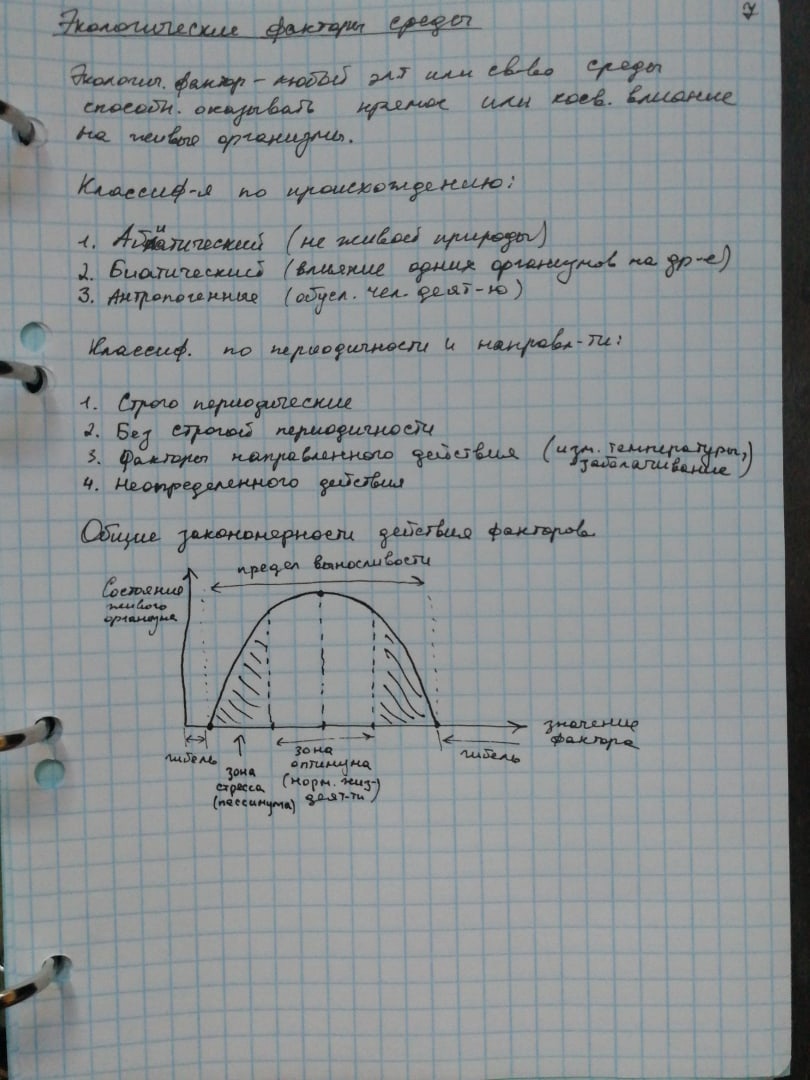 7
Экологические факторы среды
Экологич. фактор – любой элт или св-во среды
способн. оказывать прямое или косв. влиание
на живые организмы.
Классиф-я по происхождению:
1. Абиатический (не живой природы)
2. Биатический (влияние одних организмов на др-е)
3. Антропогенные (обусл. чел. деят-ю)
Классиф. по периодичности и направл-ти:
1. Строго периодические
2. Без строгой периодичности
3. Факторы направленного действия (изм. температуры,
заболачивание)
4. Неопределенного действия
Общие закономерности действия факторов
предел выносливости
Состояние
живого
организма
значение
фактора
гибель
зона
стресса
(пессимума)
зона
оптимума
(норм. жиз-
деят-ти)
гибель